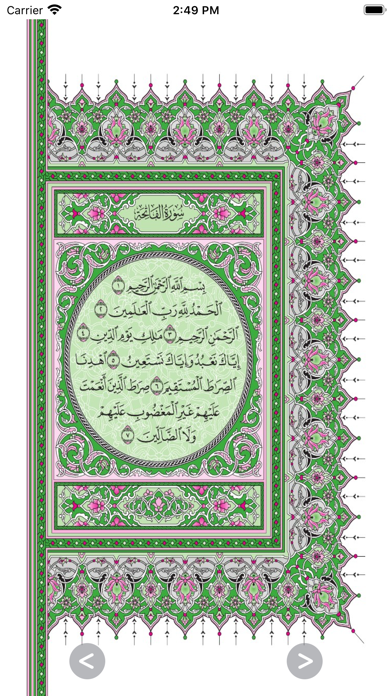 Carrier 2:49 PM
سُورَةُ الفَاتِحَةِ
بِسْمِ ٱللَّهِ ٱلرَّحْمَٰنِ ٱلرَّحِيمِ ١
ٱلْحَمْدُ لِلَّهِ رَبِّ ٱلْعَٰلَمِينَ ٢
ٱلرَّحْمَٰنِ ٱلرَّحِيمِ ٣ مَٰلِكِ يَوْمِ ٱلدِّينِ ٤
إِيَّاكَ نَعْبُدُ وَإِيَّاكَ نَسْتَعِينُ ٥ ٱهْدِنَا
ٱلصِّرَٰطَ ٱلْمُسْتَقِيمَ ٦ صِرَٰطَ ٱلَّذِينَ أَنْعَمْتَ
عَلَيْهِمْ غَيْرِ ٱلْمَغْضُوبِ عَلَيْهِمْ
وَلَا ٱلضَّآلِّينَ ٧
< >